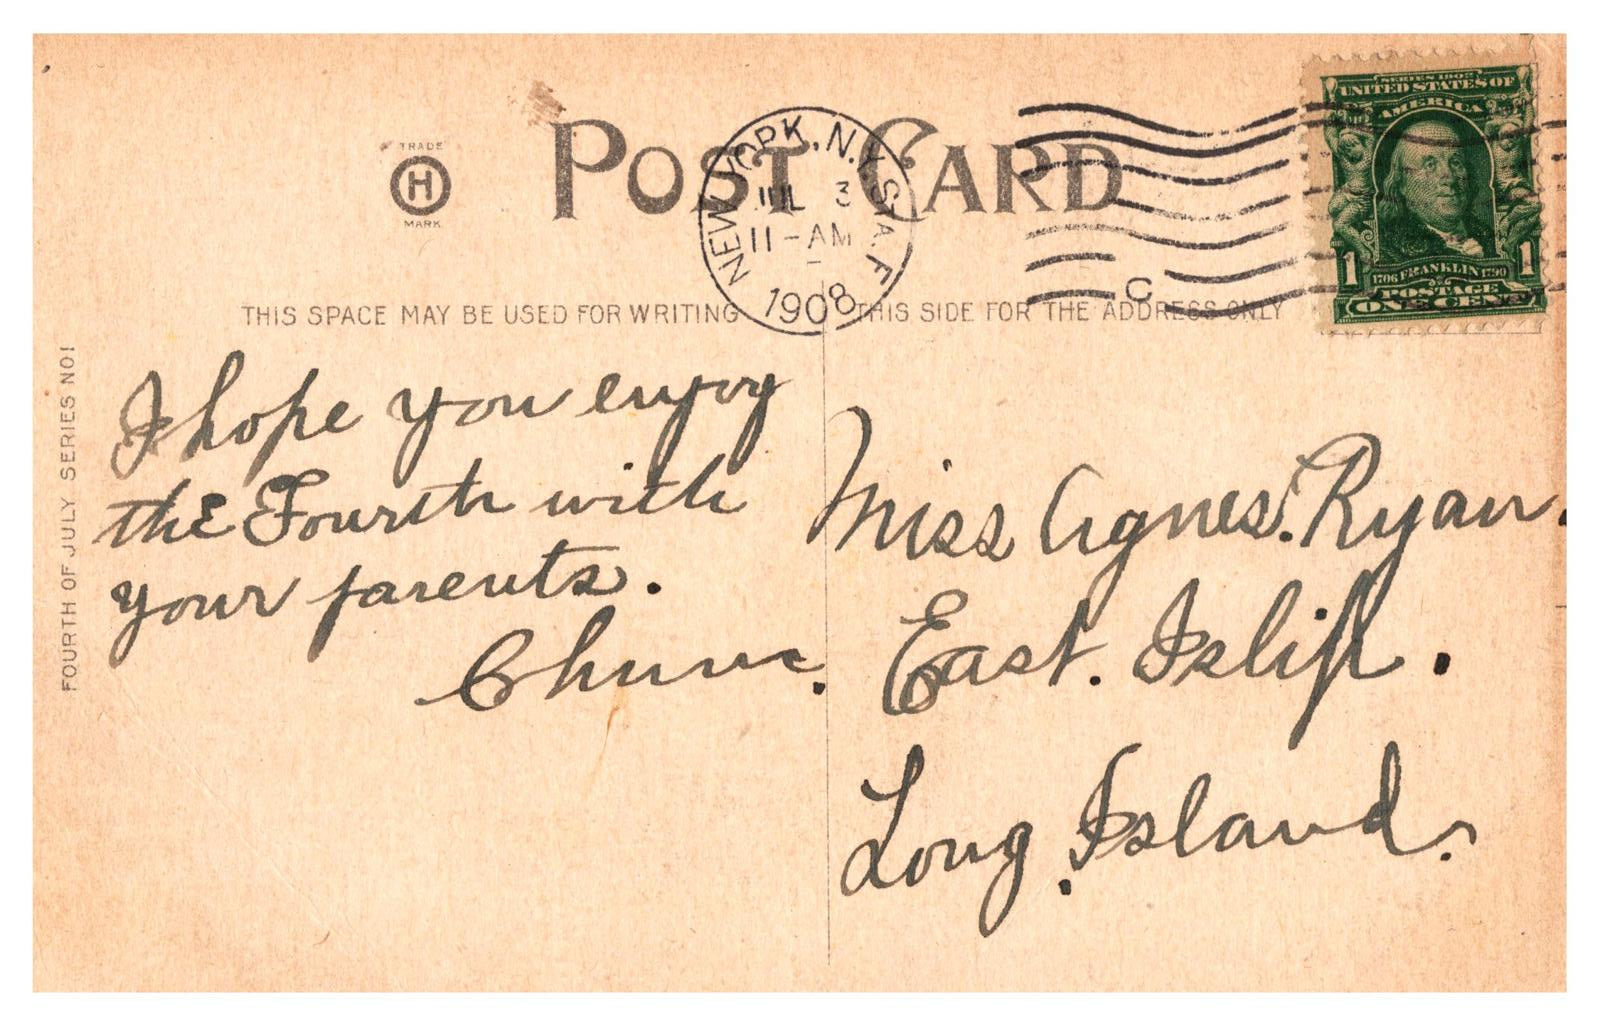 POST CARD
TRADE
H
MARK
NEW YORK, N.Y. STA. F
JUL 3
11-AM
1908
C
SERIES 1902
UNITED STATES OF
AMERICA
1 1
1706 FRANKLIN 1790
POSTAGE
ONE CENT
THIS SPACE MAY BE USED FOR WRITING
THIS SIDE FOR THE ADDRESS ONLY
FOURTH OF JULY SERIES NO1
I hope you enjoy
the Fourth with
your parents.
Miss Agnes. Ryan.
East. Islip.
Long. Island.